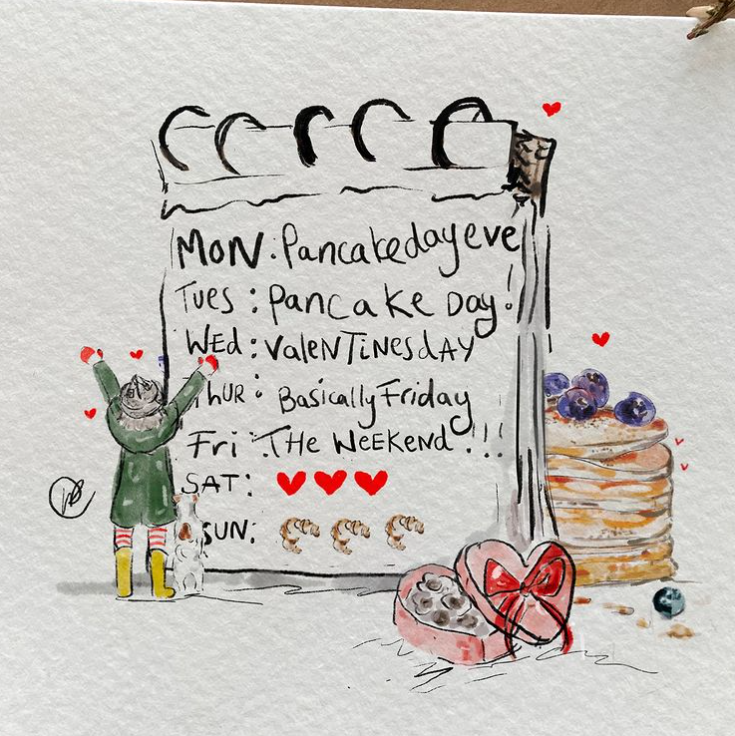 MON: Pancakedayeve
TUES: PANCAKE DAY!
WEd: VaLeNTiNesdAY
THUR: Basically Friday
Fri: THe WeeKeND!!!
SAT:
SUN: